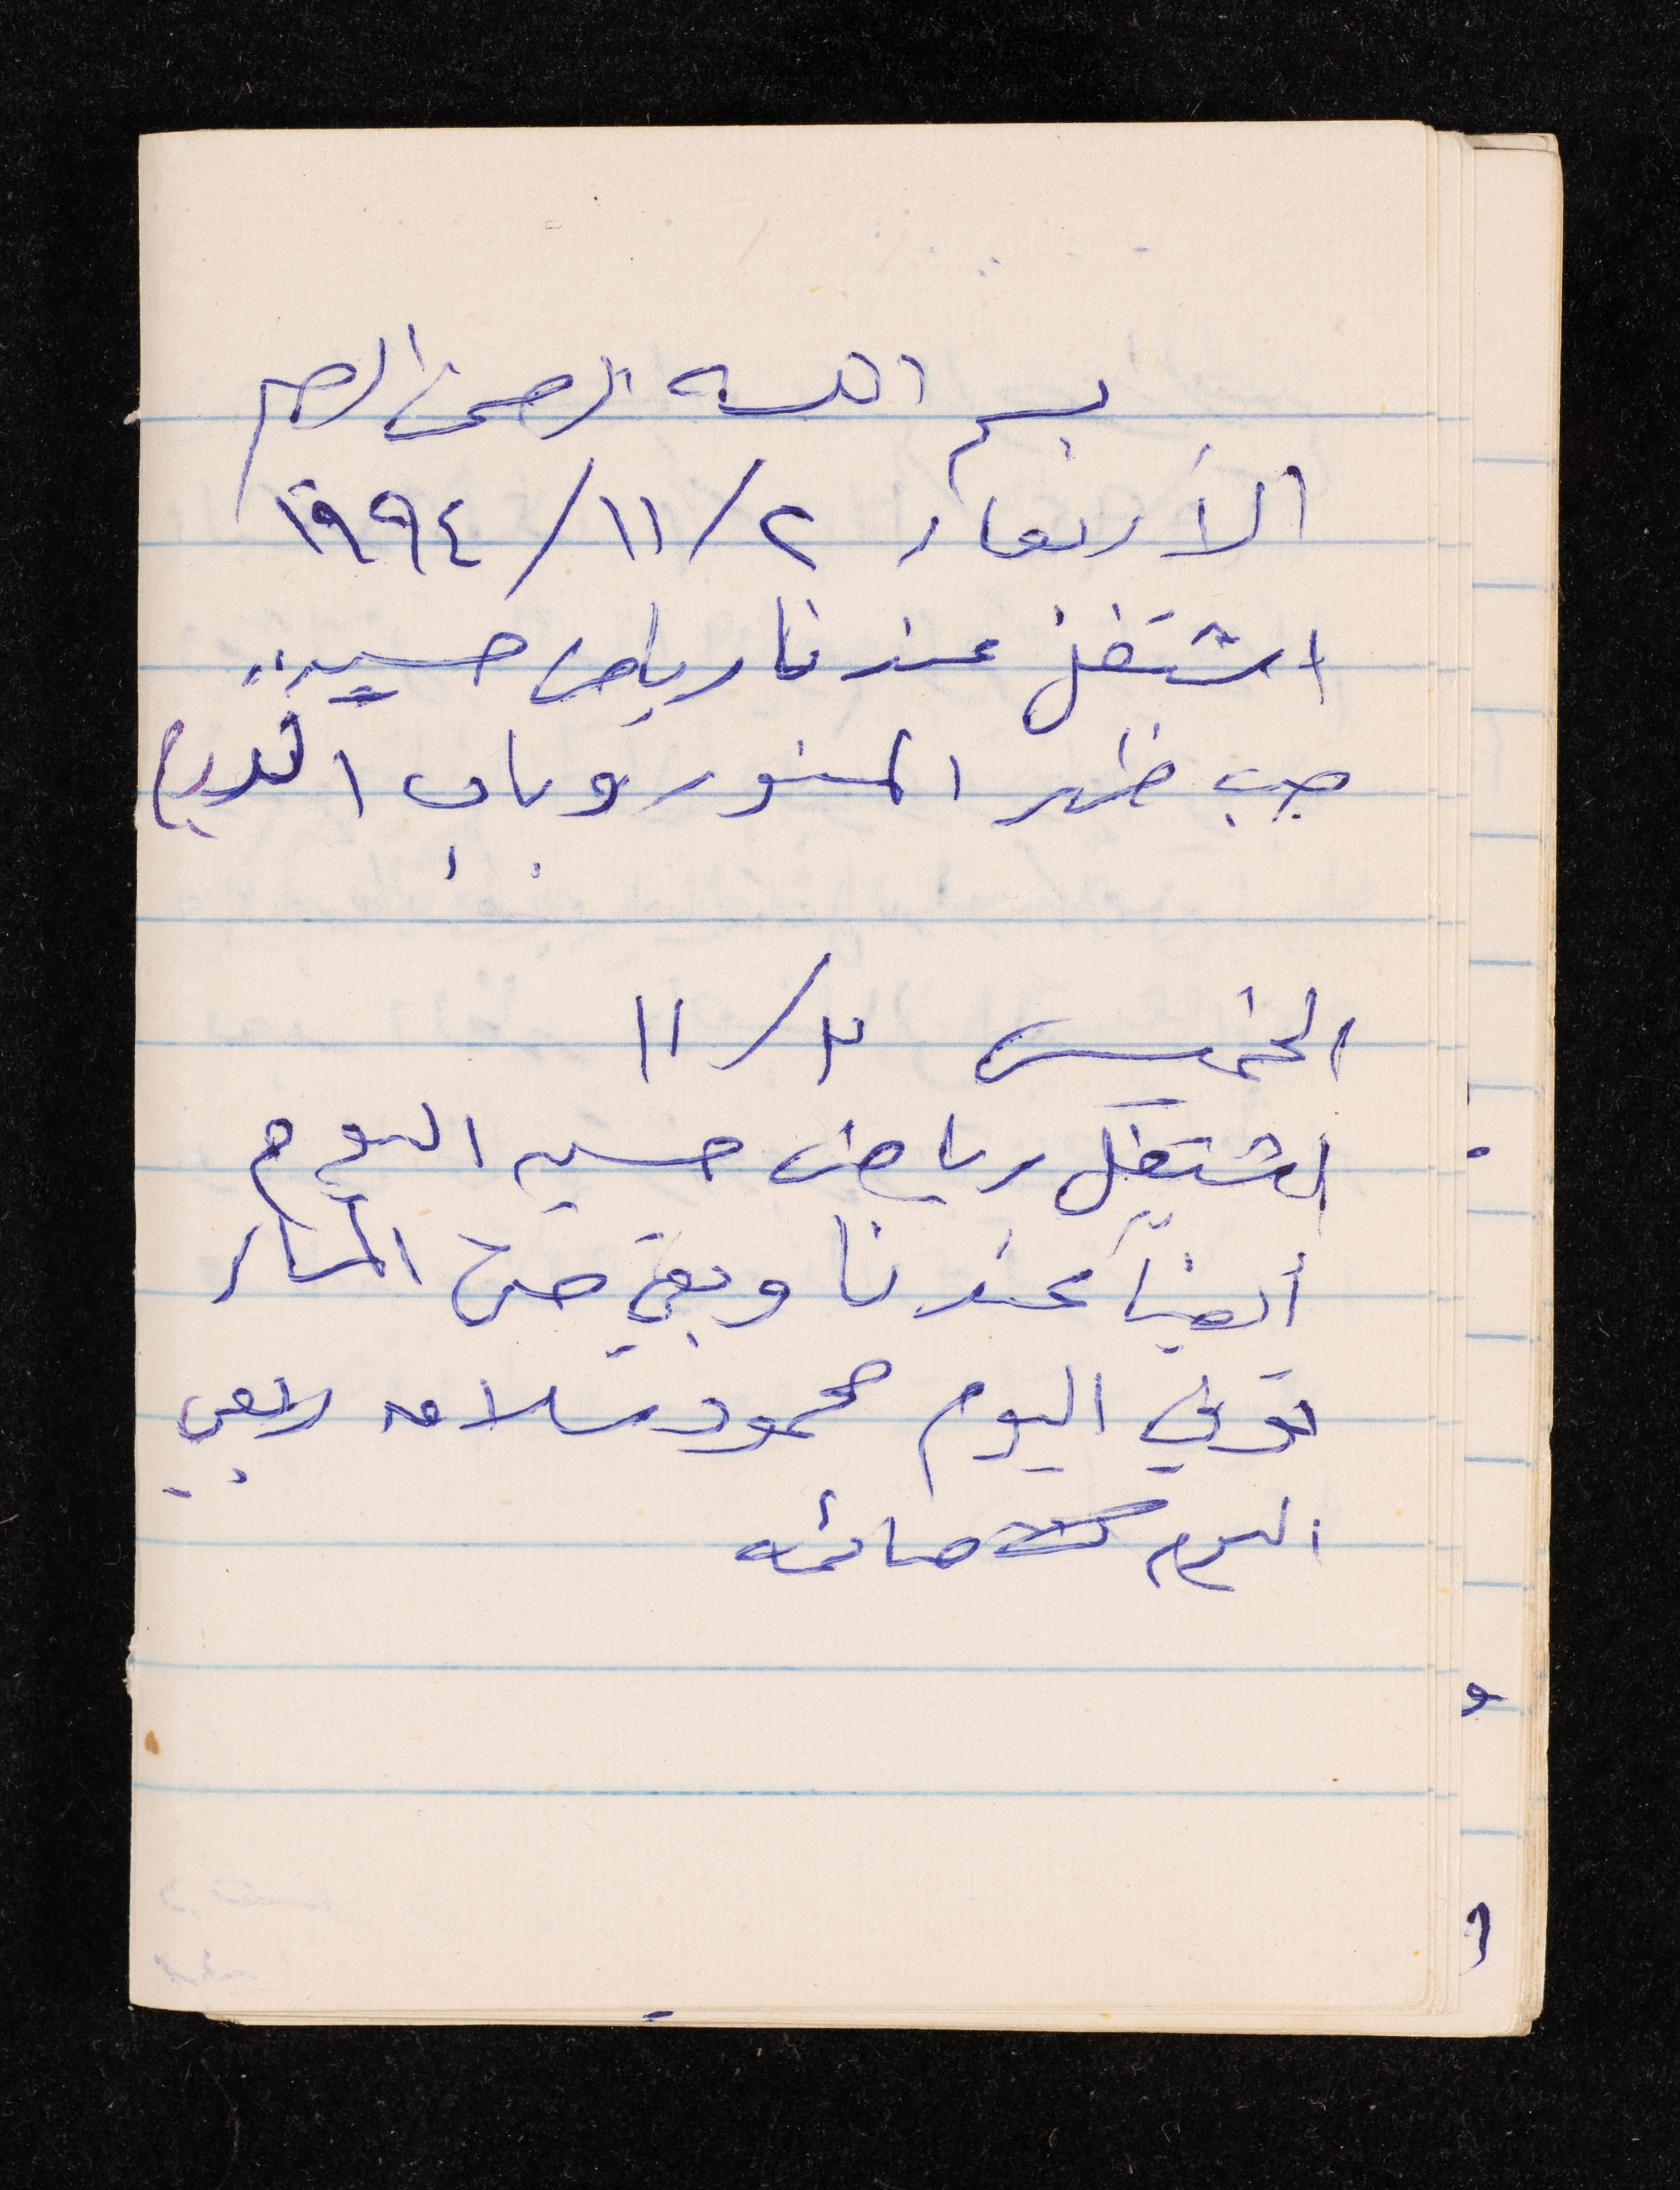 بسم الله الرحمن الرحيم
الأربعاء ٢/١١/١٩٩٤
اشتغل عندنا رياض حسين
صب ظهر المنور وباب الدرج
الخميس ٣/١١
اشتغل رياض حسين اليوم
أيضاً عندنا وبقي حتى المساء
توفي اليوم محمود سلامه
اليوم صائمه